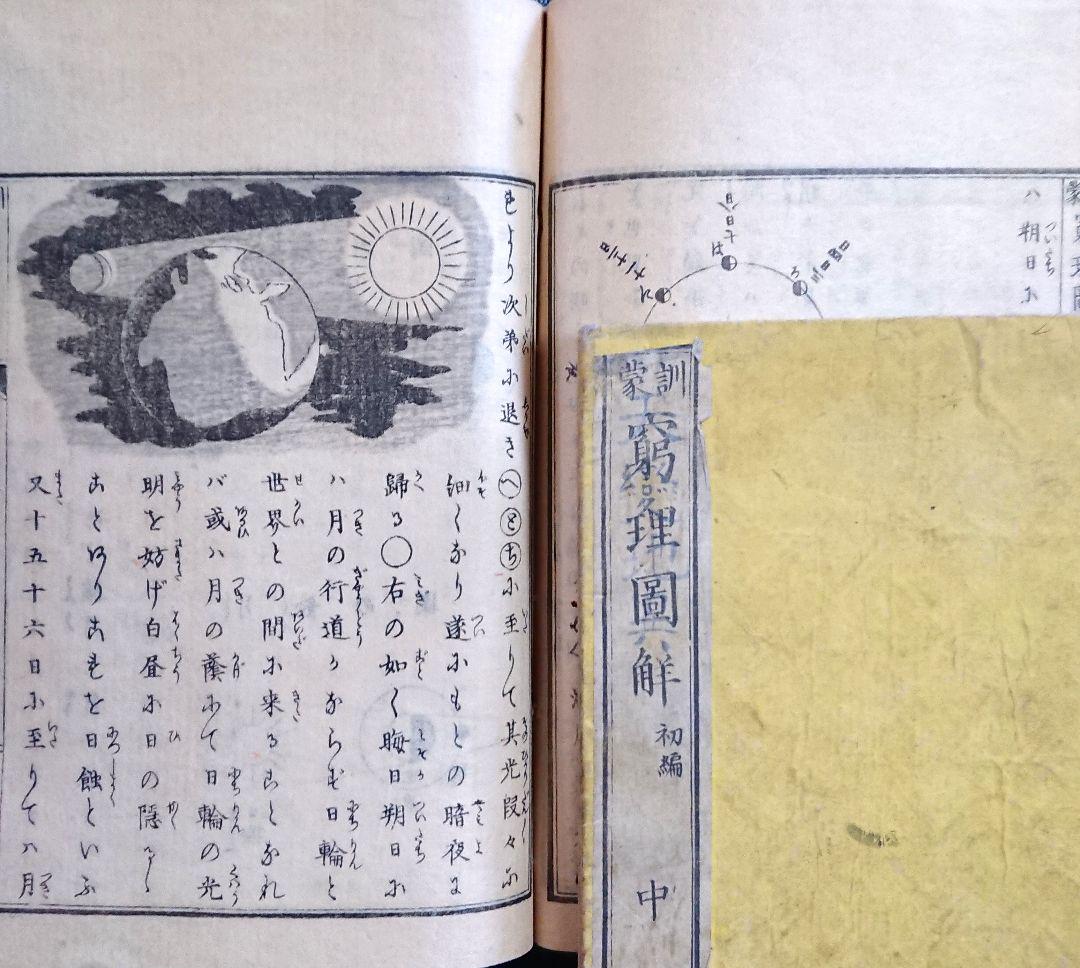 ハ朔日に
八日
訓蒙
窮理圖解
初編
中
より次第に退き㋬㋣㋠に至りて其光段々に
細くなり遂にもとの暗夜に
歸る○右の如く晦日朔日に
ハ月の行道かならず日輪と
世界との間に来ることなれ
バ或ハ月の蔭にて日輪の光
明を妨げ白昼に日の隠るゝ
ことありこれを日蝕といふ
又十五十六日に至りてハ月